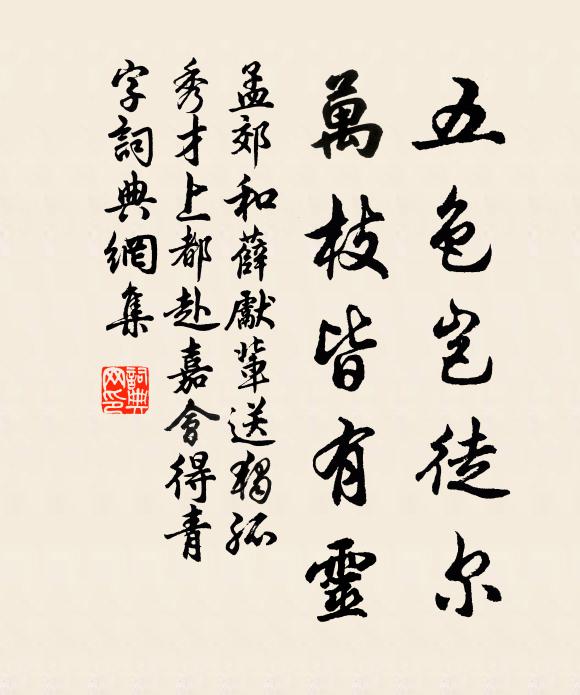 五色岂徒尔
萬枝皆有靈
孟郊和薛獻輩送獨孤
秀才上都赴嘉會得青
字詞典網集
詞典
网印